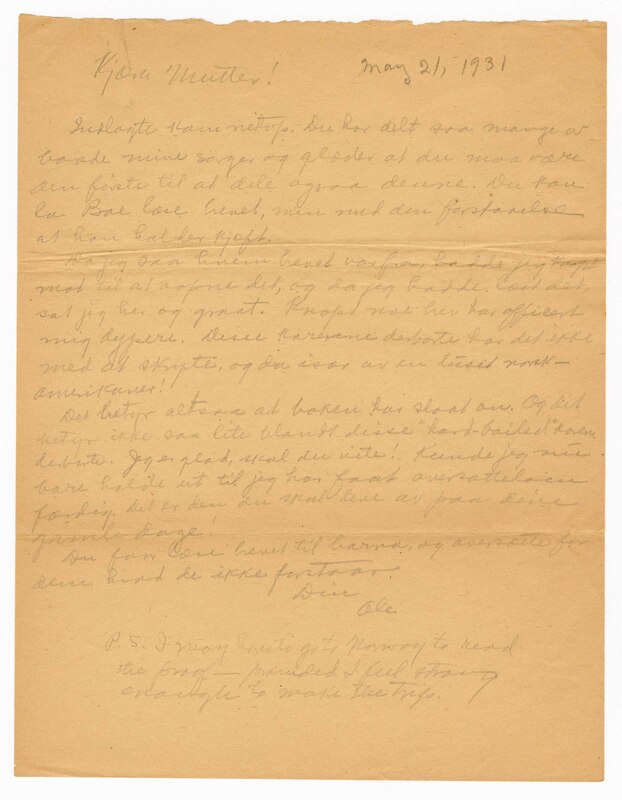 Kjære Mutter! May 21, 1931
Indlagte kom netop. Du har delt saa mange av
baade mine sorger og glæder at du maa være
den første til at dele ogsaa denne. Du kan
la Boe læse brevet, men med den forstaaelse
at han holder kjæft.
Da jeg saa hvem brevet var fra hadde jeg knapt
mot til at aapne det, og da jeg hadde læst det,
sat jeg her og graat. Knapt noe her har
mig dypere. Disse karerene derborte har det ikke
med at skryte, og da især av en luset norsk-
amerikaner!
Det betyr altsaa at boken har slaat an. Og det
betyr ikke saa lite blandt disse "hard-boiled"
derborte. Jeg er glad, skal du vite! Kunde jeg nu
bare holde ut til jeg har faat oversættelsen
færdig. Det er den du skal leve av paa dine
gamle dage!
Du faar læse brevet til barna, og oversætte for
dem hvad de ikke forstaar.
Din
Ole
P.S. I may have to go to Norway to read
the proof — provided I feel strong
enough to make the trip.